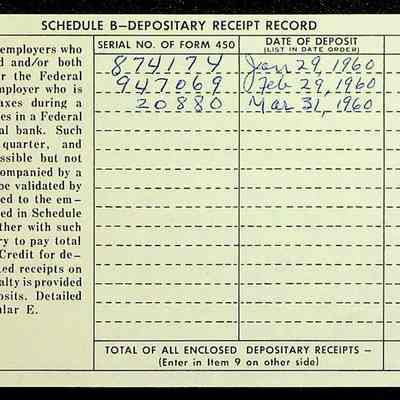 SCHEDULE B—DEPOSITARY RECEIPT RECORD
employers who
d and/or both
r the Federal
mployer who is
axes during a
es in a Federal
al bank. Such
quarter, and
ssible but not
ompanied by a
be validated by
ed to the em-
ed in Schedule
ther with such
ry to pay total
Credit for de-
ed receipts on
alty is provided
osits. Detailed
ular E.
SERIAL NO. OF FORM 450
DATE OF DEPOSIT
(LIST IN DATE ORDER)
874174 Jan 29, 1960
947069 Feb 29, 1960
20880 Mar 31, 1960
TOTAL OF ALL ENCLOSED DEPOSITARY RECEIPTS –
(Enter in Item 9 on other side)